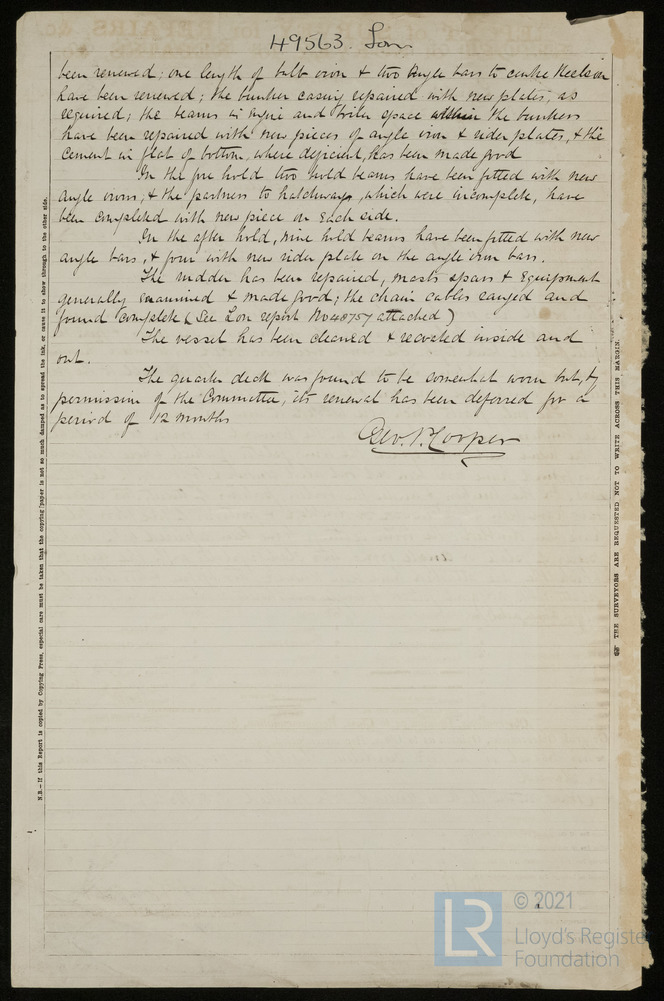 49563. Lon
been renewed; one length of bulb iron & two angle bars to centre Keelson
have been renewed; the bunker casing repaired with new plates, as
required; the beams in engine and boiler space within the bunkers
have been repaired with new pieces of angle iron & rider plates, & the
cement in flat of bottom, where deficient, has been made good
In the fore hold two hold beams have been fitted with new
angle irons, & the partners to hatchways, which were incomplete, have
been completed with new piece on each side.
In the after hold, nine hold beams have been fitted with new
angle bars, & four with new rider plate on the angle iron bars.
The rudder has been repaired, masts spars & equipment
generally examined & made good; the chain cables ranged and
found complete (See Lon report No 48757 attached)
The vessel has been cleaned & recoated inside and
out.
The quarter deck was found to be somewhat worn but, by
permission of the Committee, its renewal has been deferred for a
period of 12 months
Geo. 
N.B.—If this Report is copied by Copying Press, especial care must be taken that the copying paper is not so much damped as to spread the ink, or cause it to show through to the other side.
THE SURVEYORS ARE REQUESTED NOT TO WRITE ACROSS THIS MARGIN.
LR
© 2021
Lloyd's Register
Foundation